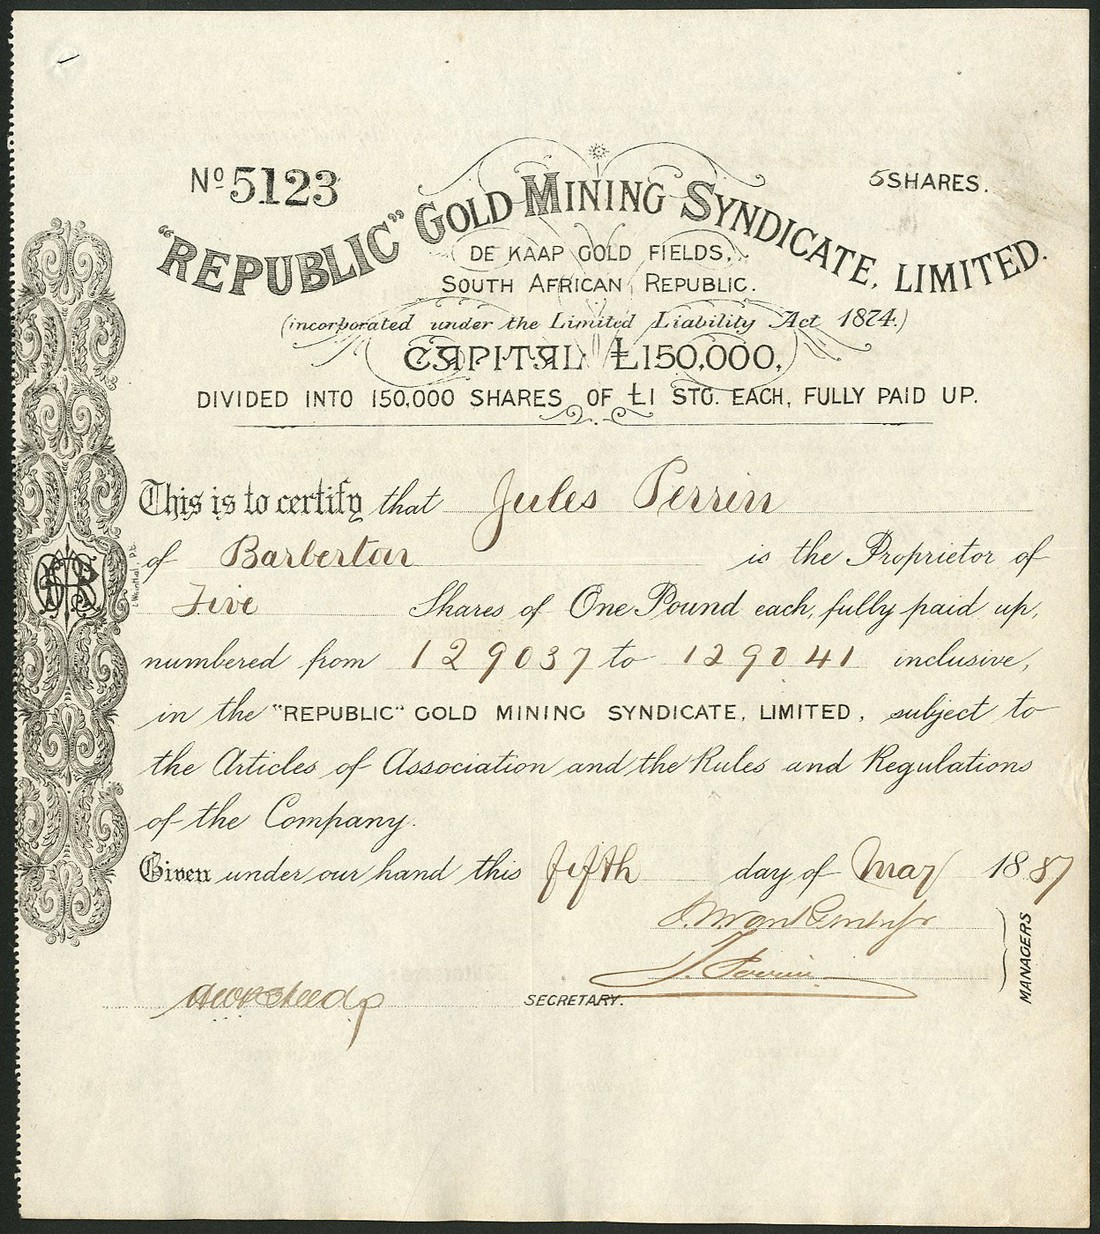 Nº 5123
5 SHARES.
"REPUBLIC" GOLD MINING SYNDICATE, LIMITED.
DE KAAP GOLD FIELDS,
SOUTH AFRICAN REPUBLIC.
(incorporated under the Limited Liability Act 1874.)
CAPITAL £150,000,
DIVIDED INTO 150,000 SHARES OF £1 STG. EACH, FULLY PAID UP.
This is to certify that Jules Perrin
of Barberton is the Proprietor of
Five Shares of One Pound each, fully paid up,
numbered from 129037 to 129041 inclusive,
in the "REPUBLIC" GOLD MINING SYNDICATE, LIMITED, subject to
the Articles of Association and the Rules and Regulations
of the Company.
Given under our hand this fifth day of May 1887
J. Perrin
MANAGERS
SECRETARY.